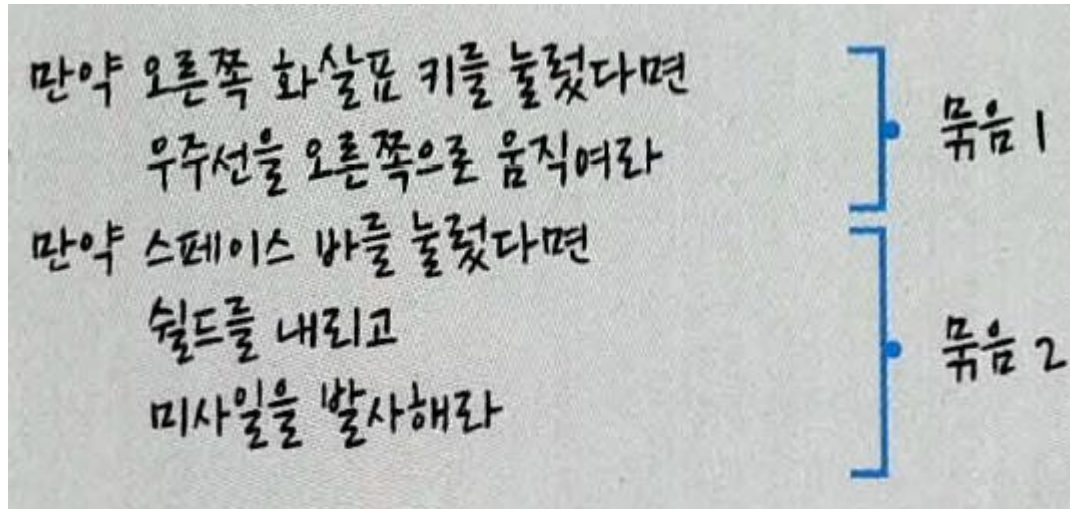 만약 오른쪽 화살표 키를 눌렀다면
우주선을 오른쪽으로 움직여라
묶음 1
만약 스페이스 바를 눌렀다면
쉴드를 내리고
미사일을 발사해라
묶음 2